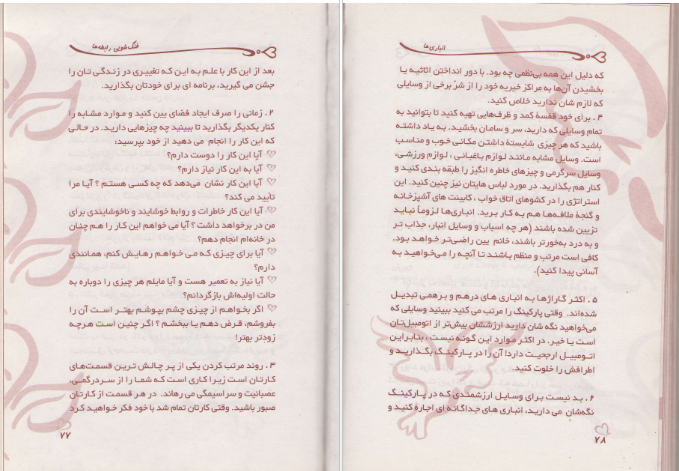 فنگ‌شویی رابطه‌ها
بعد از این کار با علم به این که تغییری در زندگی تان را
جشن می گیرید، برنامه ای برای خودتان بگذارید.
۲ . زمانی را صرف ایجاد فضای یین کنید و موارد مشابه را
کنار یکدیگر بگذارید تا ببینید چه چیزهایی دارید. در حالی
که این کار را انجام می دهید از خود بپرسید؛
آیا این کار را دوست دارم؟
آیا به این کار نیاز دارم؟
آیا این کار نشان می‌دهد که چه کسی هستم ؟ آیا مرا
تایید می کند؟
آیا این کار خاطرات و روابط خوشایند و ناخوشایندی برای
من در برخواهد داشت ؟ آیا می خواهم این کار را هم چنان
در خانه‌ام انجام دهم؟
آیا برای چیزی که می خواهم رهایش کنم، همانندی
دارم؟
آیا نیاز به تعمیر هست و آیا مایلم هر چیزی را دوباره به
حالت اولیه‌اش بازگردانم؟
اگر بخواهم از چیزی چشم بپوشم بهتر است آن را
بفروشم، قرض دهم یا ببخشم ؟ اگر چنین است هرچه
زودتر بهتر!
۳ . روند مرتب کردن یکی از پر چالش ترین قسمت‌های
کارتان است زیرا کاری است که شما را از سردرگمی،
عصبانیت و سراسیمگی می رهاند. در هر قسمت از کارتان
صبور باشید. وقتی کارتان تمام شد با خود فکر خواهید کرد
۷۷
انباری‌ها
که دلیل این همه بی‌نظمی چه بود. با دور انداختن اثاثیه یا
بخشیدن آن‌ها به مراکز خیریه خود را از شرّ برخی از وسایلی
که لازم شان ندارید خلاص کنید.
۴ . برای خود قفسهٔ کمد و ظرف‌هایی تهیه کنید تا بتوانید به
تمام وسایلی که دارید، سر و سامان بخشید. به یاد داشته
باشید که هر چیزی شایستهٔ داشتن مکانی خوب و مناسب
است. وسایل مشابه مانند لوازم باغبانی ، لوازم ورزشی،
وسایل سرگرمی و چیزهای خاطره انگیز را طبقه بندی کنید و
کنار هم بگذارید. در مورد لباس هایتان نیز چنین کنید. این
استراتژی را در کشوهای اتاق خواب ، کابینت های آشپزخانه
و گنجهٔ ملافه‌ها هم به کار برید. انباری‌ها لزوماً نباید
تزیین شده باشند (هر چه اسباب و وسایل انبار، جذاب تر
و به درد به‌خورتر باشند، خانم یین راضی‌تر خواهد بود.
کافی است مرتب و منظم باشند تا آنچه را می‌خواهید به
آسانی پیدا کنید).
۵ . اکثر گاراژها به انباری های درهم و برهمی تبدیل
شده‌اند. وقتی پارکینگ را مرتب می کنید ببینید وسایلی که
می‌خواهید نگه شان دارید ارزششان بیش‌تر از اتومبیل‌تان
است یا خیر. در اکثر موارد این گونه نیست ، بنابراین
اتومبیل ارجحیت دارد! آن را در پارکینگ بگذارید و
اطرافش را خلوت کنید.
۶ . بد نیست برای وسایل ارزشمندی که در پارکینگ
نگه‌شان می دارید، انباری های جداگانه ای اجاره کنید و
۷۸